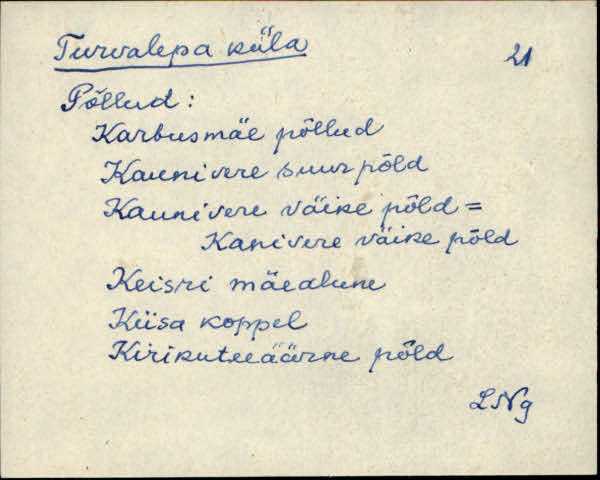 Turvalepa küla
21
Põllud:
Karbusmäe põllud
Kaunivere suurpõld
Kaunivere väike põld =
Kanivere väike põld
Keisri mäealune
Kiisa koppel
Kirikuteeäärne põld
LNg